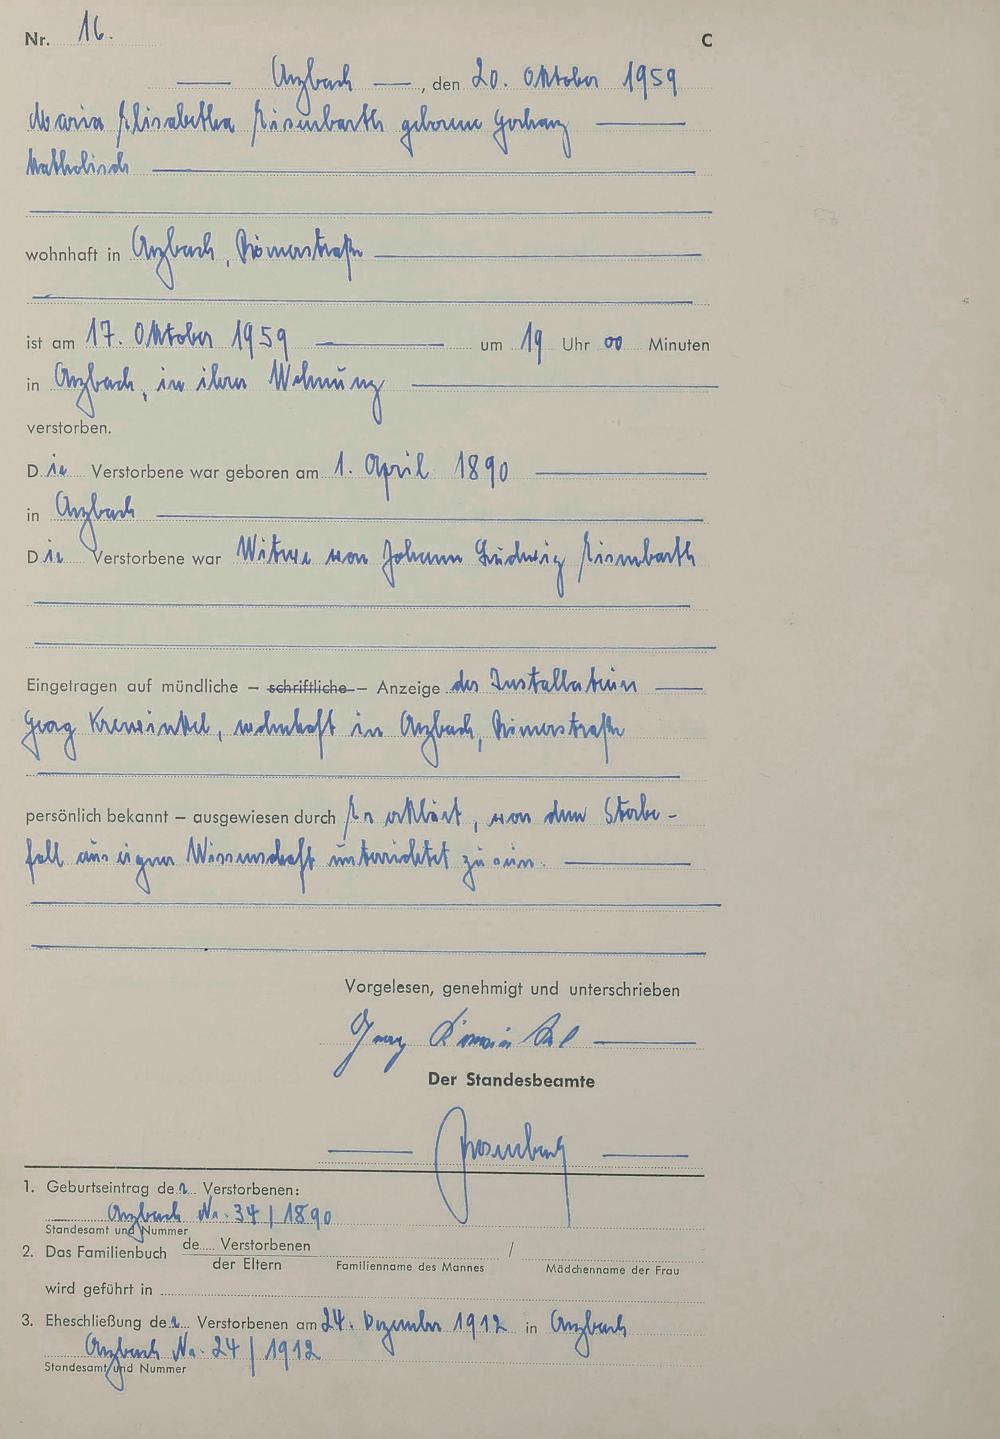 Nr. 16. C
Arzbach, den 20. Oktober 1959
Maria Elisabetha Eisenbarth geborene Gerharz
katholisch
wohnhaft in Arzbach, Römerstraße
ist am 17. Oktober 1959 um 19 Uhr 00 Minuten
in Arzbach, in ihrer Wohnung
verstorben.
Die Verstorbene war geboren am 1. April 1890
in Arzbach
Die Verstorbene war Witwe von Johann Ludwig Eisenbarth
Eingetragen auf mündliche – schriftliche – Anzeige des Installateurs
Georg Krewinkel, wohnhaft in Arzbach, Römerstraße
persönlich bekannt – ausgewiesen durch Er erklärt, von dem Sterbe-
fall aus eigner Wissenschaft unterrichtet zu sein.
Vorgelesen, genehmigt und unterschrieben
Georg Krewinkel
Der Standesbeamte
1. Geburtseintrag der Verstorbenen:
Arzbach Nr. 34/1890
Standesamt und Nummer
2. Das Familienbuch de Verstorbenen /
der Eltern Familienname des Mannes Mädchenname der Frau
wird geführt in
3. Eheschließung der Verstorbenen am 24. Dezember 1912 in Arzbach
Arzbach Nr. 24/1912
Standesamt und Nummer